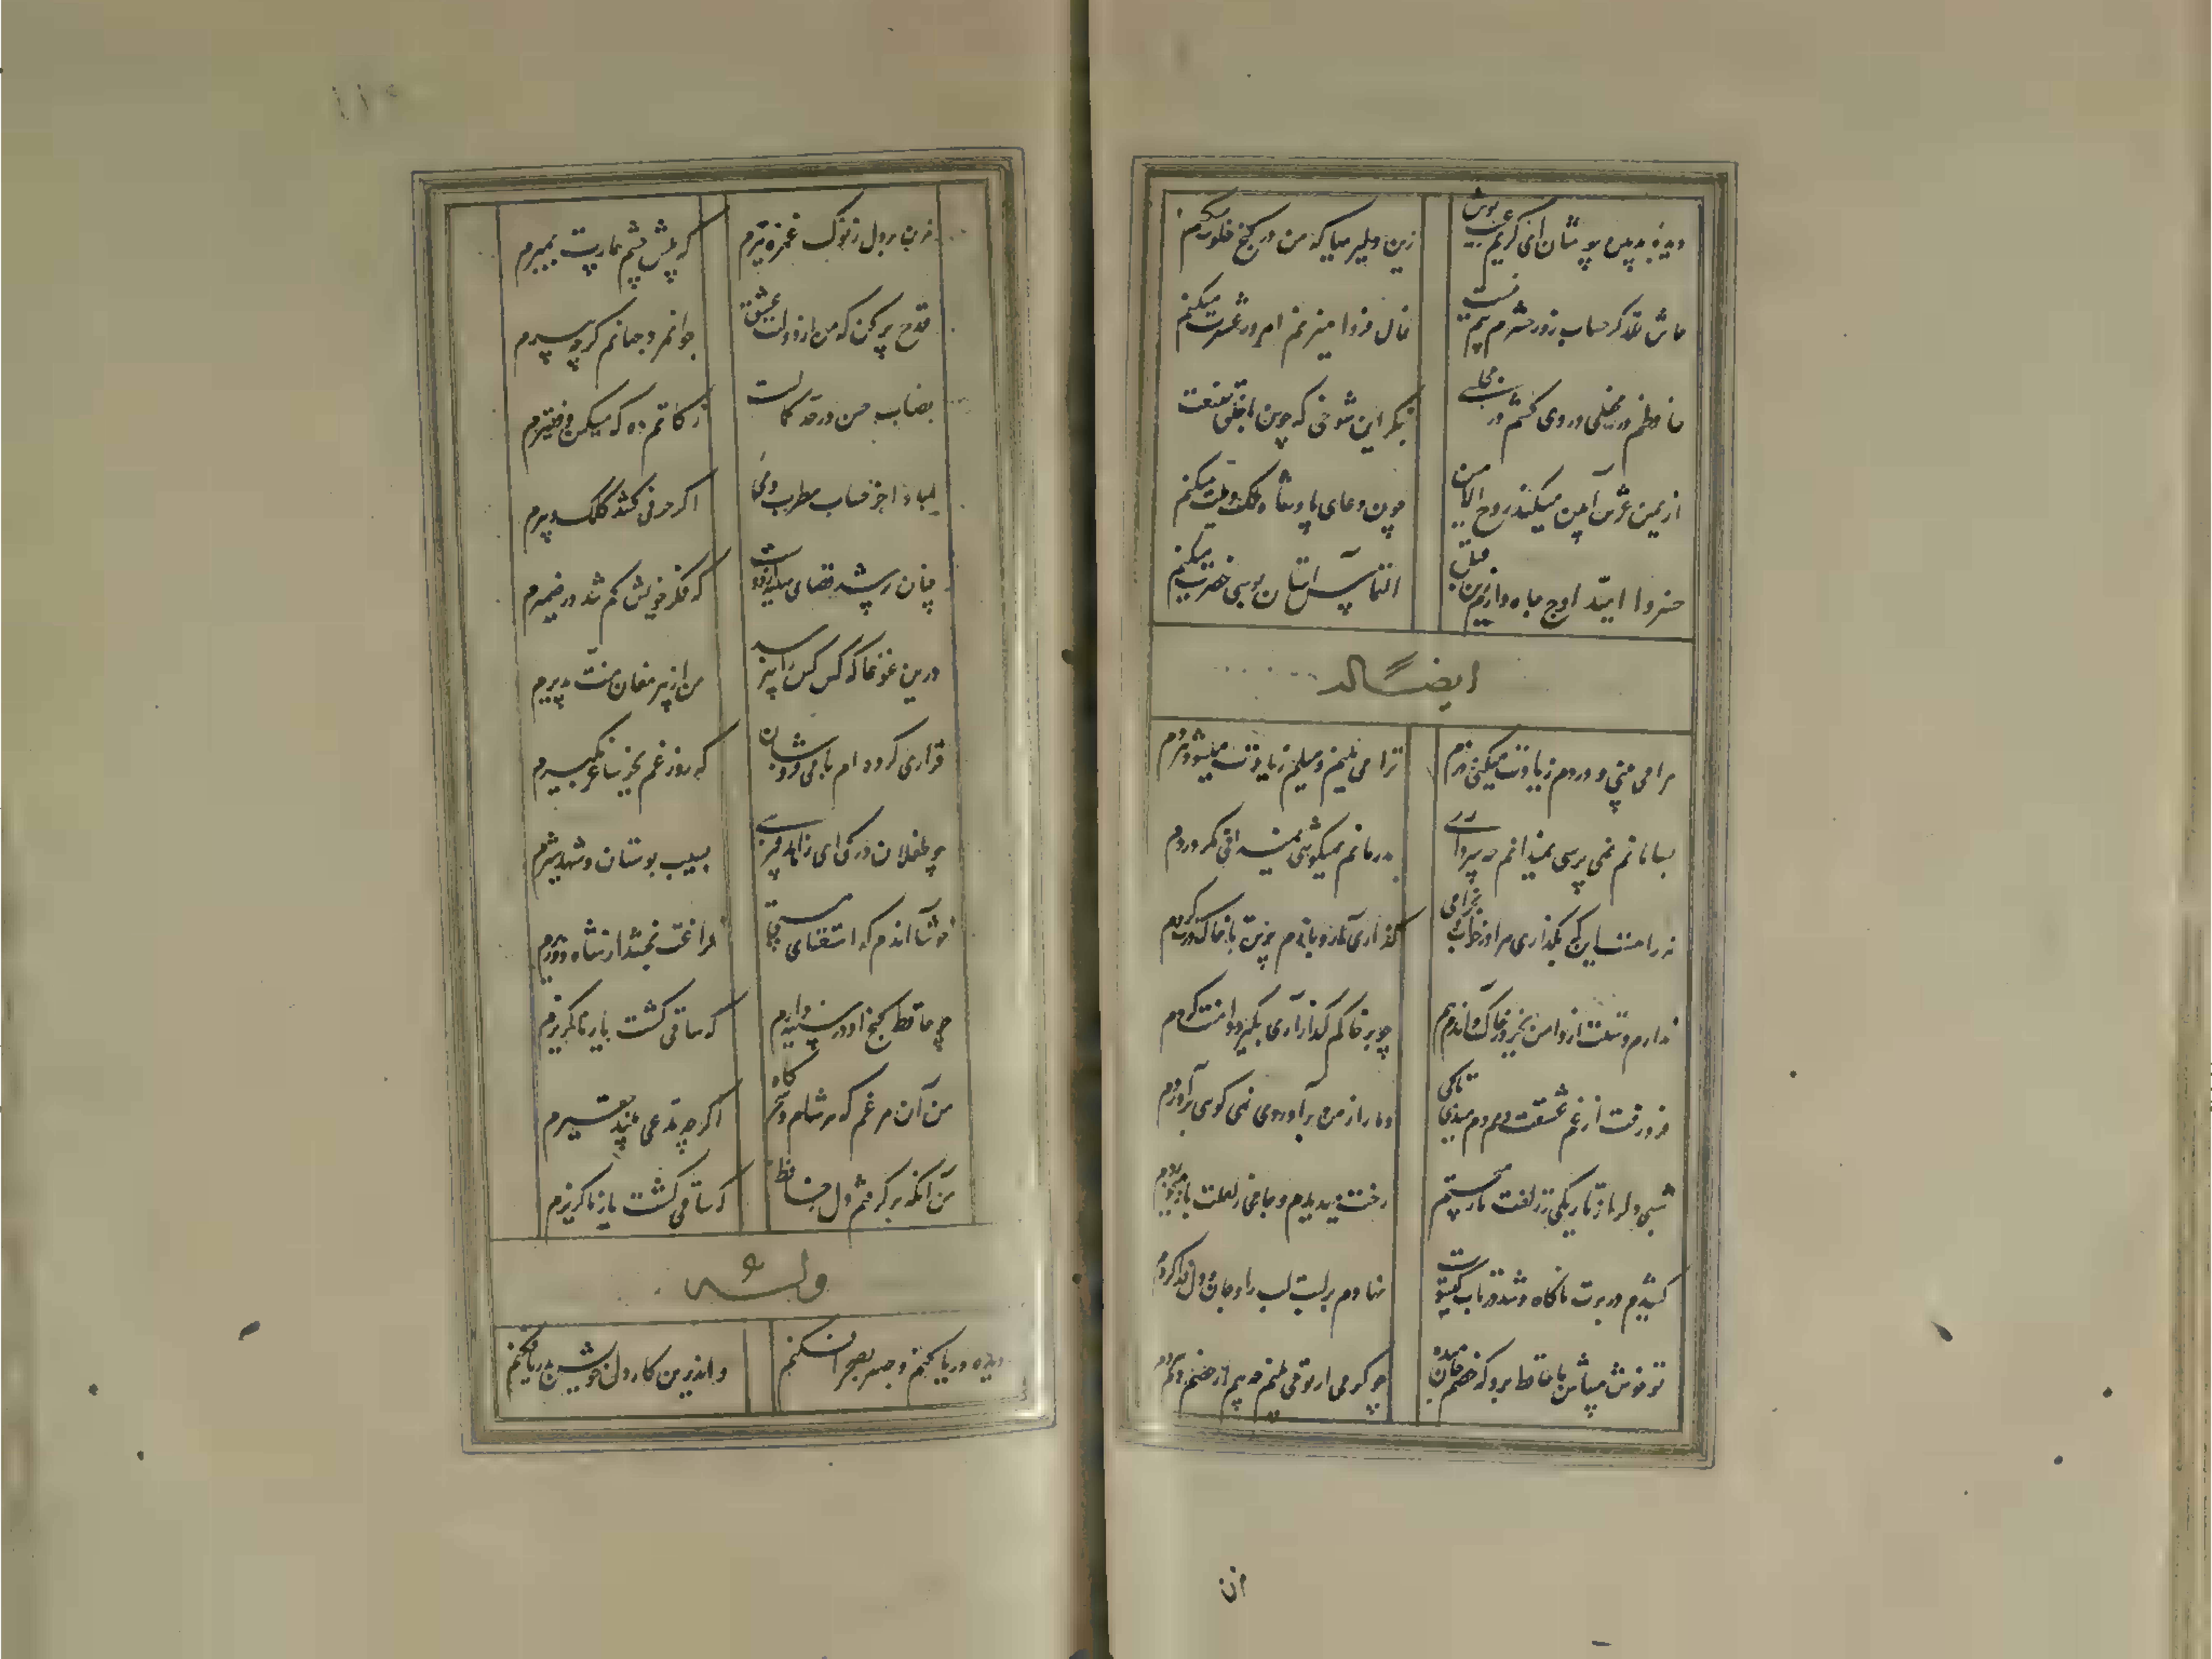 دیدهٔ بدبین بپوشان ای کریم عیب پوش زین دلیریها که من در کنج خلوت میکنم
حاش لله کز حساب روز حشرم بیم نیست فال فردا میزنم امروز عشرت میکنم
حافظم در محفلی دردی کشم در مجلسی بنگر این شوخی که چون با خلق صنعت میکنم
از یمین عرش آمین میکند روح الامین چون دعای پادشاه ملک و ملت میکنم
خسروا امید اوج جاه دارم زین قبل التماس آستان بوسی حضرت میکنم
ایضاً له
مرا می بینی و دردم زیادت میکنی دردم ترا می بینم و میلم زیادت میشود هر دم
بسامانم نمی پرسی نمیدانم چه سر داری بدرمانم نمیکوشی نمیدانی مگر دردم
نه راهست این که بگذاری مرا در خاک و بخرامی گذاری آر و بازم پرس تا خاک درت گردم
ندارم دستت از دامن بجز در خاک و آندم هم چو بر خاکم گذار آری بگیرد دامنت گردم
فرو رفت از غم عشقت دمم دم میدهی تا کی دمار از من برآوردی نمی گویی برآوردم
شبی دل را ز تاریکی ز زلفت باز میجستم رخت میدیدم و جامی ز لعلت باز میخوردم
کشیدم در برت ناگاه و شد در تاب گیسویت نهادم بر لبت لب را و جان و دل فدا کردم
تو خوش میباش با حافظ برو گو خصم جان میده چو گرمی از تو می بینم چه بیم از خصم دم سردم
ان
مزن بر دل ز نوک غمزه تیرم که پیش چشم بیمارت بمیرم
قدح پر کن که من از دولت عشق جوانمرد جهانم گرچه پیرم
نصاب حسن در حد کمالست زکاتم ده که مسکین و فقیرم
مبادا جز حساب مطرب و می اگر حرفی کشد کلک دبیرم
چنان پر شد فضای سینه از دوست که فکر خویش گم شد در ضمیرم
درین غوغا که کس کس را نپرسد من از پیر مغان منت پذیرم
قراری کرده ام با می فروشان که روز غم بجز ساغر نگیرم
چو طفلان در کی ای زاهد فریبی بسیب بوستان و شهد و شیرم
خوشا آندم که استغنای مستی فراغت بخشد از شاه و وزیرم
چو حافظ گنج او در سینه دارم که ساقی گشت یار ناگزیرم
من آن مرغم که هر شام و سحرگاه اگر چه مدعی بیند حقیرم
من آنگه بر گرفتم دل ز حافظ که ساقی گشت یار ناگزیرم
وله
دیده دریا کنم و صبر بصحرا فکنم واندرین کار دل خویش بدریا فکنم